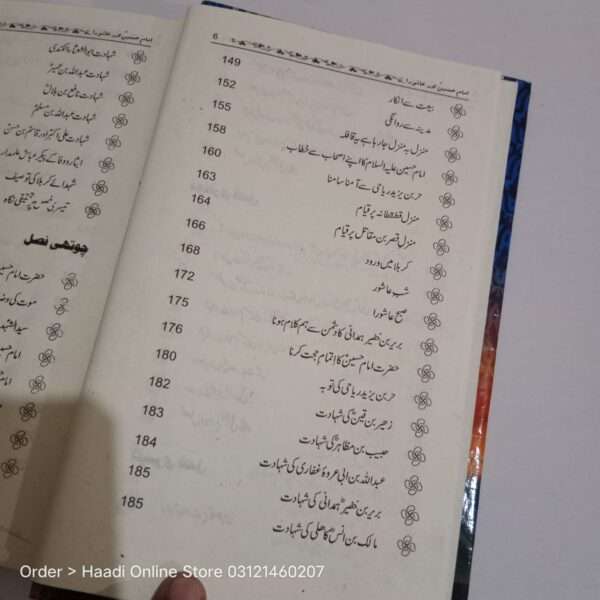 6 امام حسینؑ اور عاشورا
بیعت سے انکار 149
مدینہ سے روانگی 152
منزل بہ منزل جا رہا ہے یہ قافلہ 155
امام حسین علیہ السلام کا اپنے اصحاب سے خطاب 158
حر بن یزید ریاحی سے آمنا سامنا 160
منزل قطقطانہ پر قیام 163
منزل قصر بن مقاتل پر قیام 164
کربلا میں ورود 166
شب عاشور 168
صبح عاشورا 172
بریر بن خضیر ہمدانی کا دشمن سے ہم کلام ہونا 175
حضرت امام حسینؑ کا اتمام حجت کرنا 176
حر بن یزید ریاحی کی توبہ 180
زہیر بن قینؓ کی شہادت 182
حبیب بن مظاہرؓ کی شہادت 183
عبداللہ بن ابی عروۃ غفاری کی شہادت 184
بریر بن خضیرؓ ہمدانی کی شہادت 185
مالک بن انسؓ کاہلی کی شہادت 185
امام حسینؑ اور عاشورا
شہادت عبداللہ بن عمیر
شہادت نافع بن ہلالؓ
شہادت عبداللہ بن مسلمؓ
شہادت علی اکبرؑ اور قاسم بن حسنؑ
ایثار و وفا کے پیکر عباسؑ علمدار
شہدائے کربلا کی توصیف
تیسری فصل پر تحقیقی نگاہ
چوتھی فصل
حضرت امام حسینؑ
موت کی
سید الشہد
امام حسینؑ
امام
Order > Haadi Online Store 03121460207